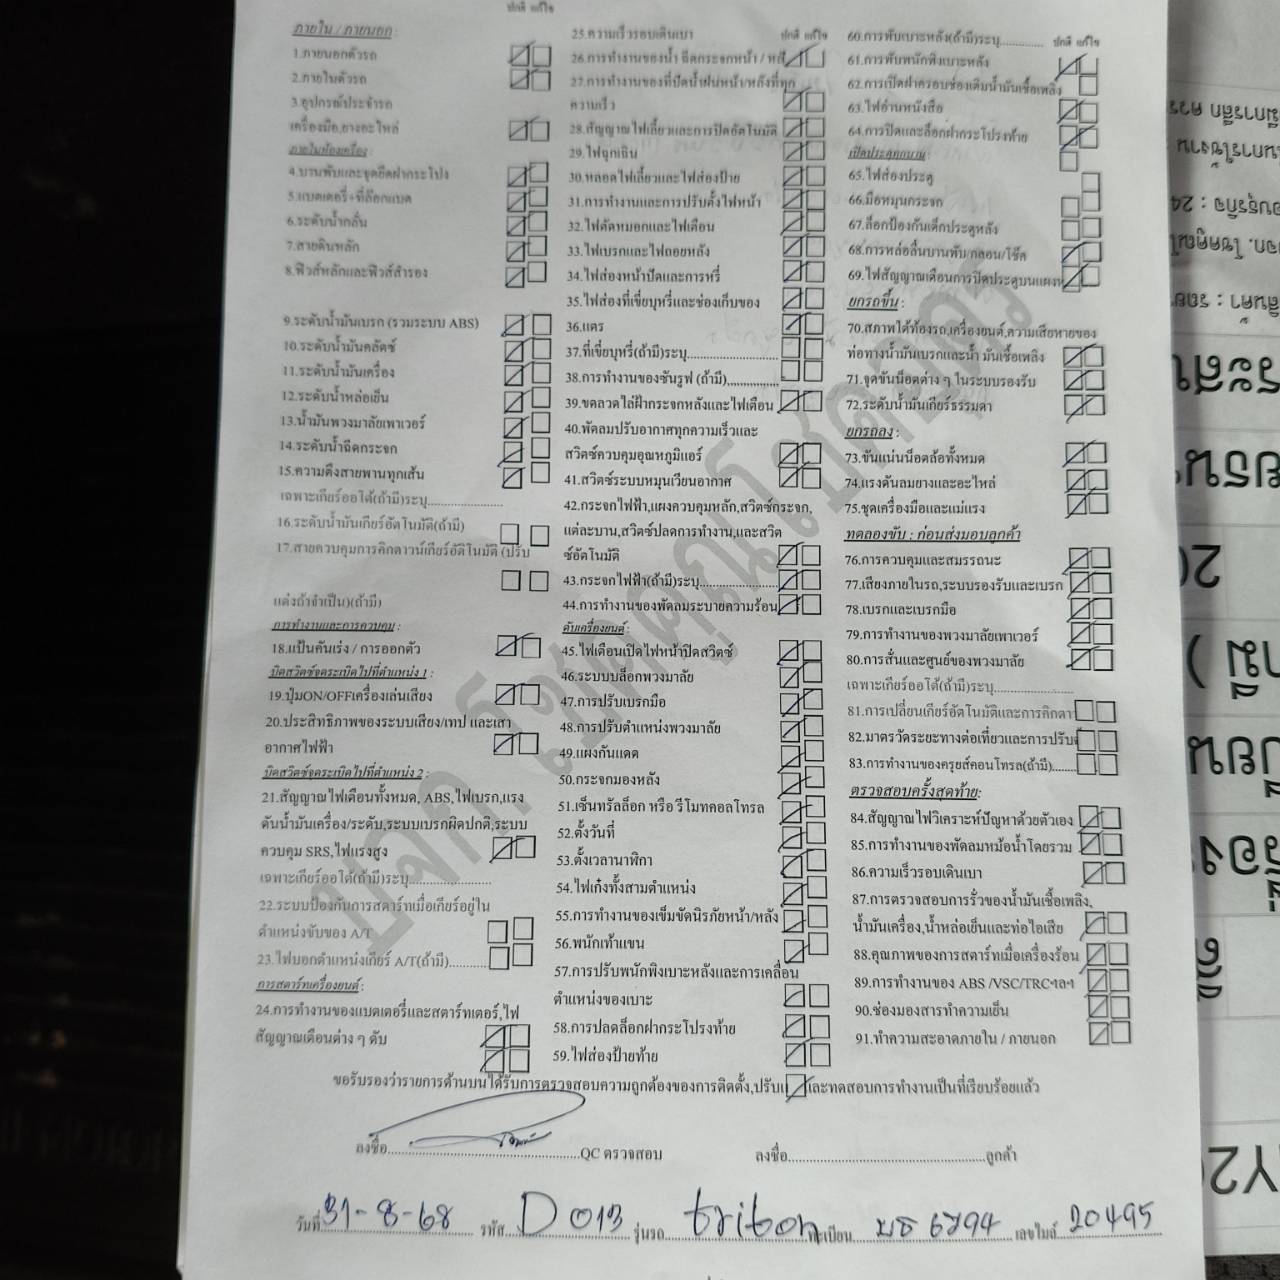 ปกติ แก้ไข
ภายใน / ภายนอก :
1.ภายนอกตัวรถ
2.ภายในตัวรถ
3.อุปกรณ์ประจำรถ
เครื่องมือ,ยางอะไหล่
ภายในห้องเครื่อง :
4.บานพับและจุดยึดฝากระโปง
5.แบตเตอรี่+ที่ล๊อกแบต
6.ระดับน้ำกลั่น
7.สายดินหลัก
8.ฟิวส์หลักและฟิวส์สำรอง
9.ระดับน้ำมันเบรก (รวมระบบ ABS)
10.ระดับน้ำมันคลัตช์
11.ระดับน้ำมันเครื่อง
12.ระดับน้ำหล่อเย็น
13.น้ำมันพวงมาลัยเพาเวอร์
14.ระดับน้ำฉีดกระจก
15.ความตึงสายพานทุกเส้น
เฉพาะเกียร์ออโต้(ถ้ามี)ระบุ....................
16.ระดับน้ำมันเกียร์อัตโนมัติ(ถ้ามี)
17.สายควบคุมการคิกดาวน์เกียร์อัติโนมัติ (ปรับ
แต่งถ้าจำเป็น)(ถ้ามี)
การทำงานและการควบคุม :
18.แป้นคันเร่ง / การออกตัว
บิดสวิตซ์จุดระเบิดไปที่ตำแหน่ง 1 :
19.ปุ่มON/OFFเครื่องเล่นเสียง
20.ประสิทธิภาพของระบบเสียง/เทป และเสา
อากาศไฟฟ้า
บิดสวิตซ์จุดระเบิดไปที่ตำแหน่ง 2 :
21.สัญญาณไฟเตือนทั้งหมด, ABS,ไฟเบรก,แรง
ดันน้ำมันเครื่อง/ระดับ,ระบบเบรกผิดปกติ,ระบบ
ควบคุม SRS,ไฟแรงสูง
เฉพาะเกียร์ออโต้(ถ้ามี)ระบุ......................
22.ระบบป้องกันการสตาร์ทเมื่อเกียร์อยู่ใน
ตำแหน่งขับของ A/T
23.ไฟบอกตำแหน่งเกียร์ A/T(ถ้ามี)..........
การสตาร์ทเครื่องยนต์ :
24.การทำงานของแบตเตอรี่และสตาร์ทเตอร์,ไฟ
สัญญาณเตือนต่าง ๆ ดับ
25.ความเร็วรอบเดินเบา
ปกติ แก้ไข
26.การทำงานของน้ำ ฉีดกระจกหน้า / หลัง
27.การทำงานของที่ปัดน้ำฝนหน้า/หลังที่ทุก
ความเร็ว
28.สัญญาณไฟเลี้ยวและการปิดอัตโนมัติ
29.ไฟฉุกเฉิน
30.หลอดไฟเลี้ยวและไฟส่องป้าย
31.การทำงานและการปรับตั้งไฟหน้า
32.ไฟตัดหมอกและไฟเตือน
33.ไฟเบรกและไฟถอยหลัง
34.ไฟส่องหน้าปัดและการหรี่
35.ไฟส่องที่เขี่ยบุหรี่และช่องเก็บของ
36.แตร
37.ที่เขี่ยบุหรี่(ถ้ามี)ระบุ..........................
38.การทำงานของซันรูฟ (ถ้ามี)................
39.ขดลวดไล่ฝ้ากระจกหลังและไฟเตือน
40.พัดลมปรับอากาศทุกความเร็วและ
สวิตซ์ควบคุมอุณหภูมิแอร์
41.สวิตซ์ระบบหมุนเวียนอากาศ
42.กระจกไฟฟ้า,แผงควบคุมหลัก,สวิตซ์กระจก,
แต่ละบาน,สวิตซ์ปลดการทำงาน,และสวิต
ซ์อัตโนมัติ
43.กระจกไฟฟ้า(ถ้ามี)ระบุ.......................
44.การทำงานของพัดลมระบายความร้อน
ดับเครื่องยนต์ :
45.ไฟเตือนเปิดไฟหน้าปิดสวิตซ์
46.ระบบบล็อกพวงมาลัย
47.การปรับเบรกมือ
48.การปรับตำแหน่งพวงมาลัย
49.แผงกันแดด
50.กระจกมองหลัง
51.เซ็นทรัลล็อก หรือ รีโมทคอลโทรล
52.ตั้งวันที่
53.ตั้งเวลานาฬิกา
54.ไฟเก๋งทั้งสามตำแหน่ง
55.การทำงานของเข็มขัดนิรภัยหน้า/หลัง
56.พนักเท้าแขน
57.การปรับพนักพิงเบาะหลังและการเคลื่อน
ตำแหน่งของเบาะ
58.การปลดล็อกฝากระโปรงท้าย
59.ไฟส่องป้ายท้าย
60.การพับเบาะหลัง(ถ้ามี)ระบุ............
ปกติ แก้ไข
61.การพับพนักพิงเบาะหลัง
62.การเปิดฝาครอบช่องเติมน้ำมันเชื้อเพลิง
63.ไฟอ่านหนังสือ
64.การปิดและล็อกฝากระโปรงท้าย
เปิดประตูทุกบาน :
65.ไฟส่องประตู
66.มือหมุนกระจก
67.ล็อกป้องกันเด็กประตูหลัง
68.การหล่อลื่นบานพับ/กลอน/โช๊ค
69.ไฟสัญญาณเตือนการปิดประตูบนแผงห
ยกรถขึ้น :
70.สภาพใต้ท้องรถ,เครื่องยนต์,ความเสียหายของ
ท่อทางน้ำมันเบรกและน้ำ มันเชื้อเพลิง
71.จุดขันน็อตต่าง ๆ ในระบบรองรับ
72.ระดับน้ำมันเกียร์ธรรมดา
ยกรถลง :
73.ขันแน่นน็อตล้อทั้งหมด
74.แรงดันลมยางและอะไหล่
75.ชุดเครื่องมือและแม่แรง
ทดลองขับ : ก่อนส่งมอบลูกค้า
76.การควบคุมและสมรรถนะ
77.เสียงภายในรถ,ระบบรองรับและเบรก
78.เบรกและเบรกมือ
79.การทำงานของพวงมาลัยเพาเวอร์
80.การสั่นและศูนย์ของพวงมาลัย
เฉพาะเกียร์ออโต้(ถ้ามี)ระบุ......................
81.การเปลี่ยนเกียร์อัตโนมัติและการคิกดาว
82.มาตรวัดระยะทางต่อเที่ยวและการปรับตั้
83.การทำงานของครุยส์คอนโทรล(ถ้ามี).......
ตรวจสอบครั้งสุดท้าย:
84.สัญญาณไฟวิเคราะห์ปัญหาด้วยตัวเอง
85.การทำงานของพัดลมหม้อน้ำโดยรวม
86.ความเร็วรอบเดินเบา
87.การตรวจสอบการรั่วของน้ำมันเชื้อเพลิง,
น้ำมันเครื่อง,น้ำหล่อเย็นและท่อไอเสีย
88.คุณภาพของการสตาร์ทเมื่อเครื่องร้อน
89.การทำงานของ ABS /VSC/TRCฯลฯ
90.ช่องมองสารทำความเย็น
91.ทำความสะอาดภายใน / ภายนอก
ขอรับรองว่ารายการด้านบนได้รับการตรวจสอบความถูกต้องของการติดตั้ง,ปรับแ และทดสอบการทำงานเป็นที่เรียบร้อยแล้ว
ลงชื่อ........................................QC ตรวจสอบ ลงชื่อ........................................ลูกค้า
วันที่ 31-8-68 รหัส D 013 รุ่นรถ triton ทะเบียน บธ 6794 เลขไมล์ 20495